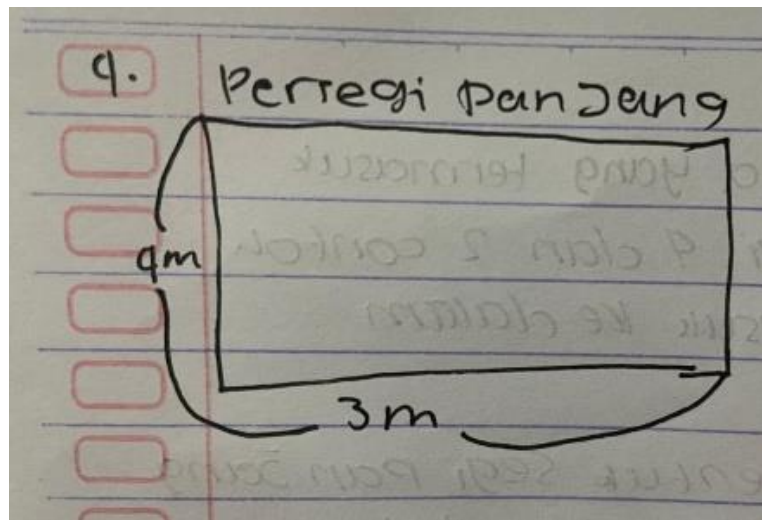 4. Persegi panjang
4m
3m